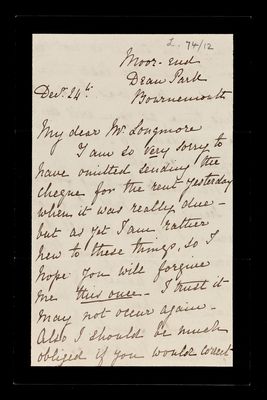 L. 74/12
Moor-end
Dean Park
Bournemouth
Decr. 24th
My dear Mr Longmore
I am so very sorry to
have omitted sending the
cheque for the rent yesterday
when it was really due -
but as yet I am rather
new to these things, so I
hope you will forgive
me this once - I trust it
may not occur again.
Also I should be much
obliged if you would correct